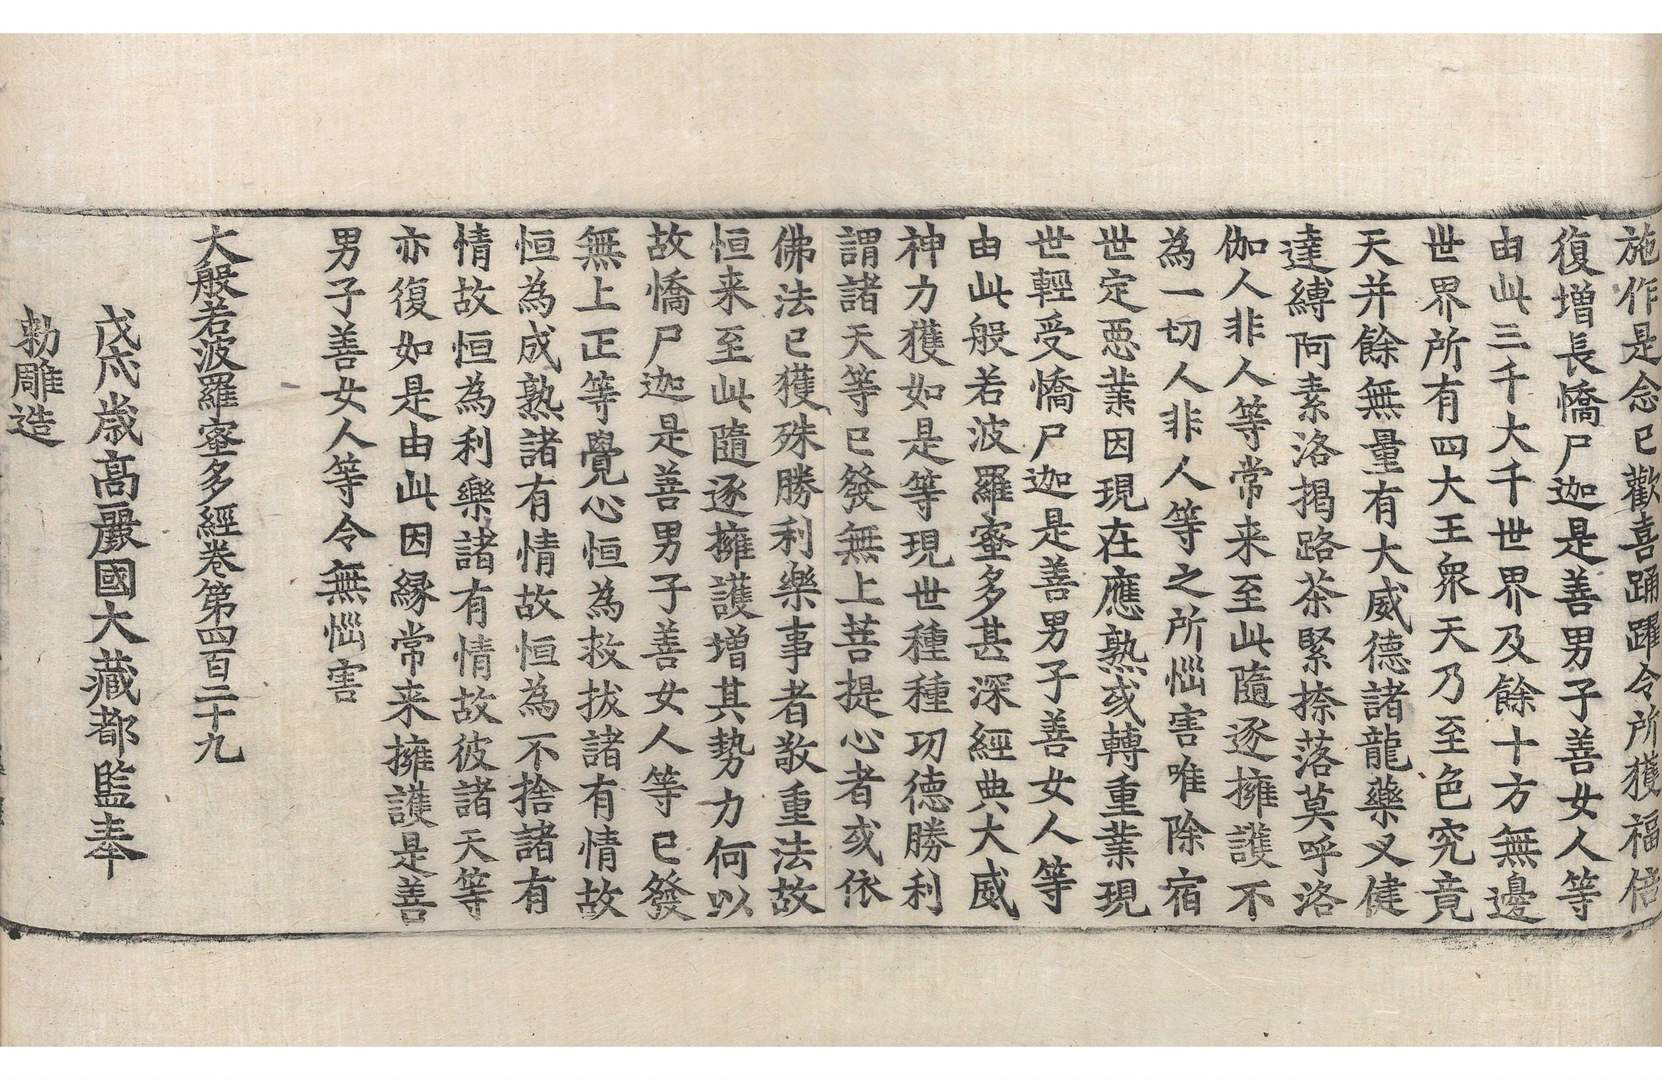 施作是念已歡喜踊躍令所獲福倍
復增長憍尸迦是善男子善女人等
由此三千大千世界及餘十方無邊
世界所有四大王衆天乃至色究竟
天并餘無量有大威德諸龍藥叉健
達縛阿素洛揭路荼緊捺落莫呼洛
伽人非人等常来至此隨逐擁護不
為一切人非人等之所惱害唯除宿
世定惡業因現在應熟或轉重業現
世輕受憍尸迦是善男子善女人等
由此般若波羅蜜多甚深經典大威
神力獲如是等現世種種功德勝利
謂諸天等已發無上菩提心者或依
佛法已獲殊勝利樂事者敬重法故
恒来至此隨逐擁護增其勢力何以
故憍尸迦是善男子善女人等已發
無上正等覺心恒為救拔諸有情故
恒為成熟諸有情故恒為不捨諸有
情故恒為利樂諸有情故彼諸天等
亦復如是由此因縁常来擁護是善
男子善女人等令無惱害
大般若波羅蜜多經卷第四百二十九
戊戌歳高麗國大藏都監奉
勅雕造